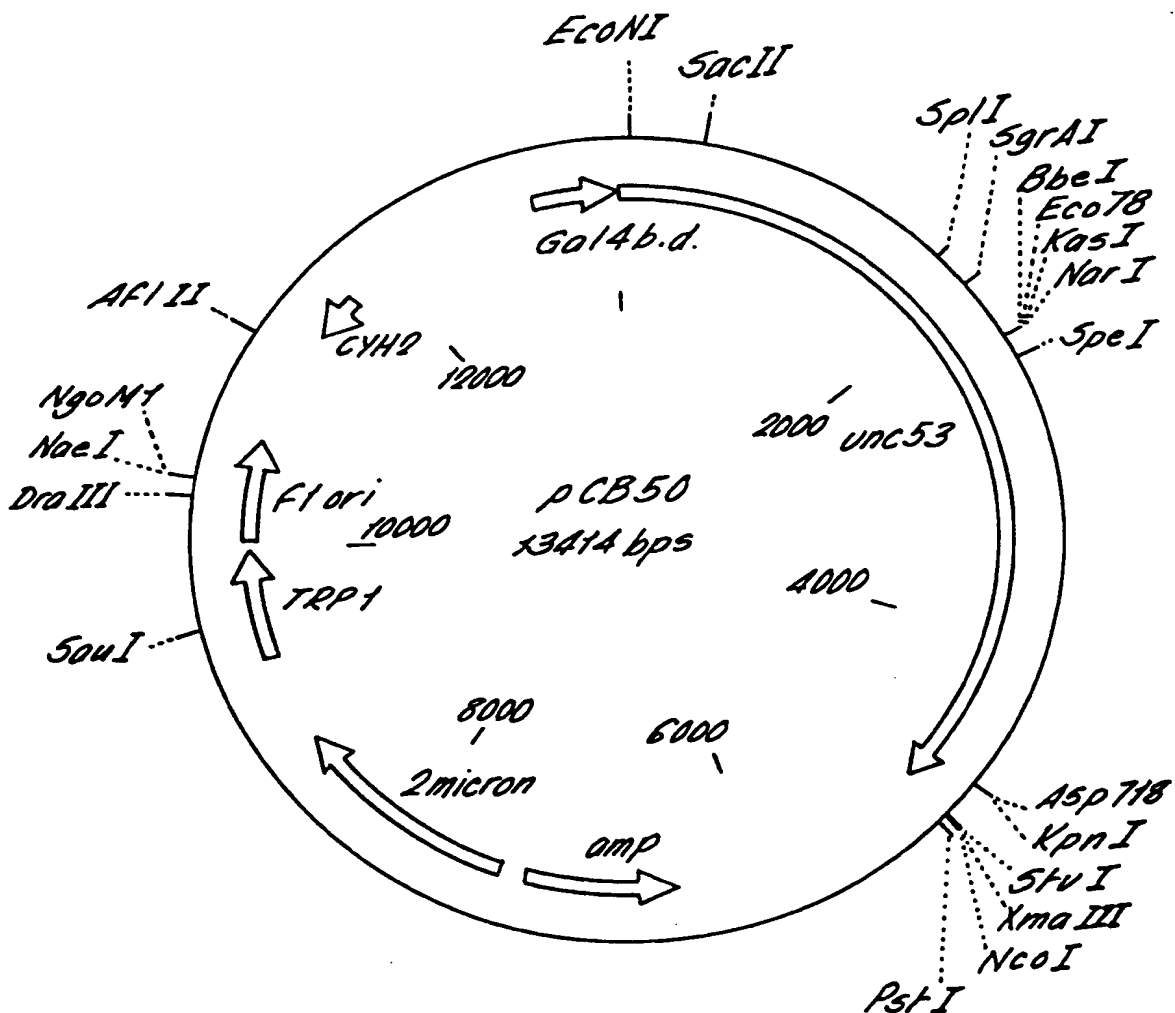 EcoNI
SacII
SplI
SgrAI
BbeI
Eco78
KasI
NarI
SpeI
Gal4b.d.
AflII
CYH2
12000
NgoM1
NaeI
DraIII
2000
unc53
pCB50
13414 bps
F1 ori
10000
4000
TRP1
SauI
8000
6000
2micron
amp
Asp718
KpnI
StuI
XmaIII
NcoI
PstI